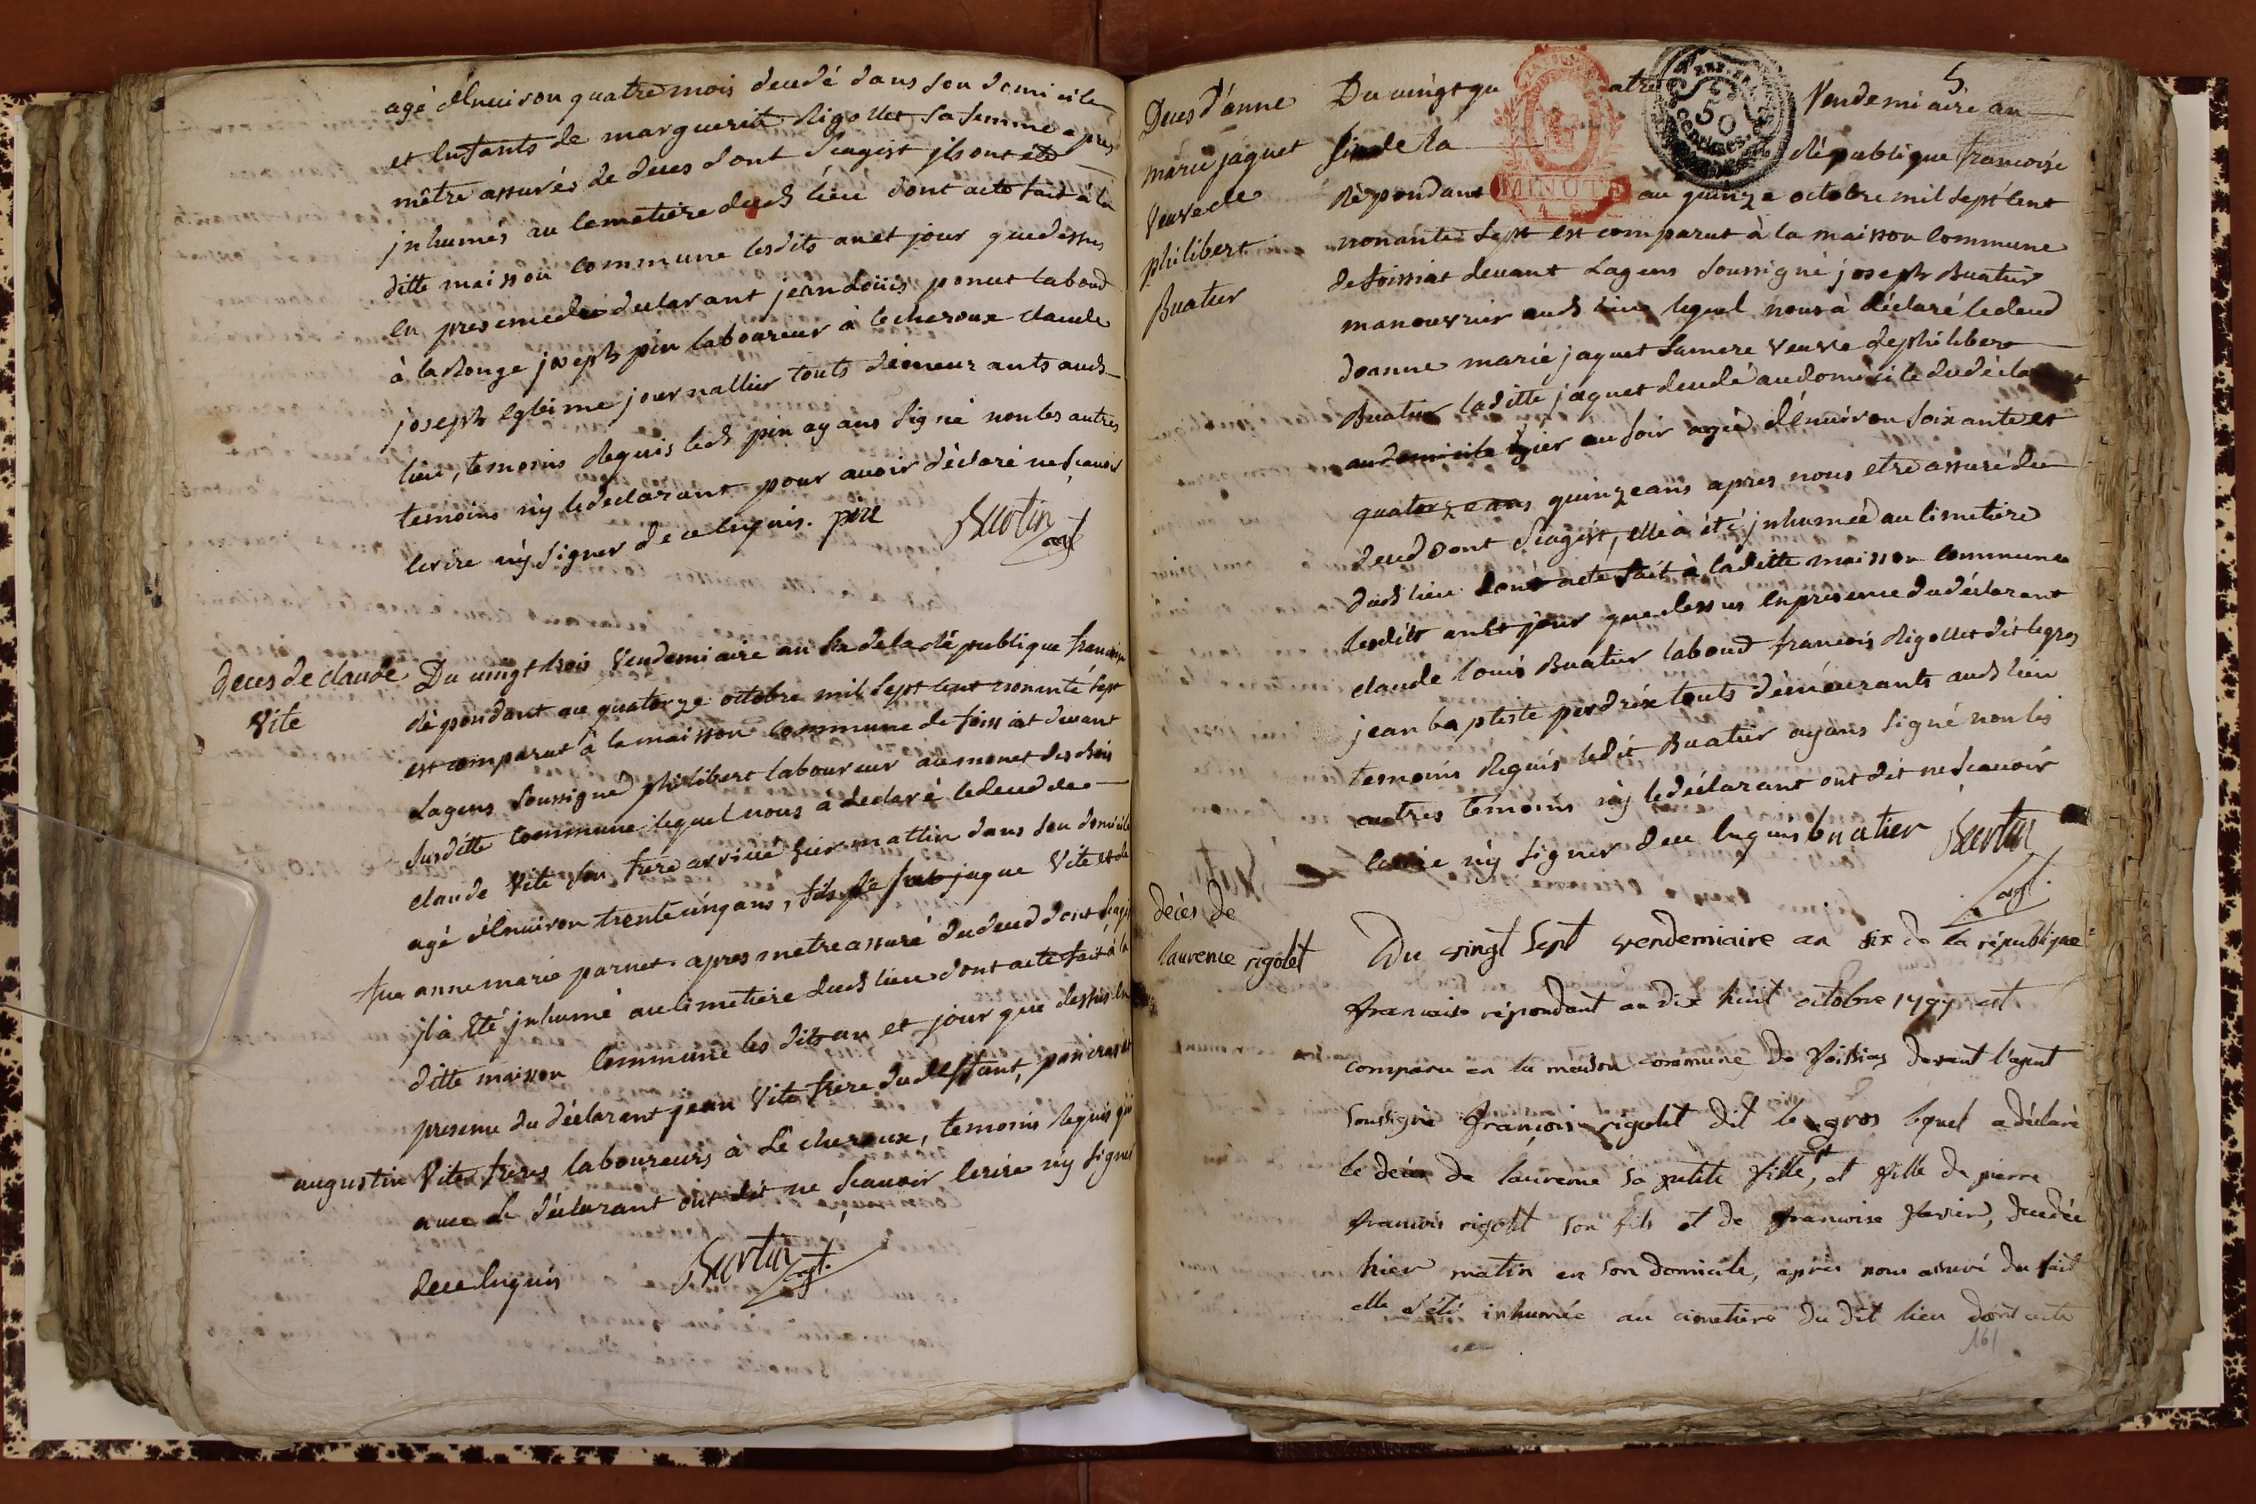 agé d'Environ quatre mois decedé dans son domicile
et Enfants de marguerite Rigollet sa femme apres
mêtre assurés de deces dont S'cagist jls ont été
jnhumés au Cemetiere dud lieu dont acte fait à la
ditte maison commune lesdits an et jour que dessus
En presence du declarant jean Loüis poncet laboud
à la Ronge joseph pin laboureur à Lecheroux claude
joseph Egleime journallier touts démeurants aud
lieu, temoins Requis led pin ayans Signé non les autres
temoins nÿ le declarant pour avoir déclaré ne scavoir
Ecrire nÿ signer de ce Enquis. pin Burtin agt
deces de claude
Vite
Du vingt trois Vendemiaire an Six de la République francoise
Répondant au quatorze octobre mil Sept Cent nonante Sept
est comparut à la maison Commune de foissiat devant
Lagens Soussigné philibert laboureur au monet des bois
Susditte Commune lequel nous à déclaré le deced de
claude Vite Son frere arrivé hier mattin dans Son domicile
agé d'Environ trente cinq ans, fils de feu jaque Vite et de
feu anne marie parnet. apres mêtre assuré du deced dont S'agit
jl à Eté jnhumé au Cimetiere dud lieu dont acte fait à la
ditte maison Commune les dits an et jour que dessus En
presence du déclarant jean Vite frere du deffant, pancras et
augustin Vite freres laboureurs à Lécheroux, temoins Requis qui
avec le déclarant ont dit ne Scavoir Ecrire nÿ Signer
de ce Enquis Burtin agt.
5
Deces d'anne
marie jaquet
Veuve de
philibert
Buatier
MINUTE
50
Centimes
Du vingt quatre Vendemiaire an
Six de la République francoise
Répondant au quinze octobre mil Sept Cent
nonante Sept est comparut à la maison Commune
de foissiat devant Lagens Soussigné joseph Buatier
manouvrier aud lieu lequel nous à déclaré le deced
d'anne marie jaquet Sa mere Veuve de philibere
Buatier laditte jaquet decedé au domicile du déclarant
au domicile hier au soir agée d'Environ Soixante et
quatorze ans quinze ans apres nous etre assuré du
deced dont S'cagist, elle à été jnhumée au Cimetiere
dud lieu dont acte fait à laditte maison Commune
lesdits an et jour que dessus En presence du déclarant
claude Louis Buatier laboud francois Rigollet dit le gros
jean baptiste perdrix touts démeurants aud lieu
temoins Requis ledit Buatier ayans Signé non les
autres temoins nÿ le déclarant ont dit ne Scavoir
Ecrire nÿ Signer de ce Enquis buatier Burtin
agt.
décès de
laurence rigolet
Du vingt Sept vendemiaire an six de la république
francaise répondant au dix huit octobre 1797 est
comparu en la maison commune de foissiat devant l'agent
soussigné françois rigolet dit le gros lequel a déclaré
le décès de laurence sa petite fille, et fille de pierre
francois rigolet son fils et de francoise favier, decedée
hier matin en son domicile, après nous assuré du fait
elle a été inhumée au cimetiere du dit lieu dont acte
161